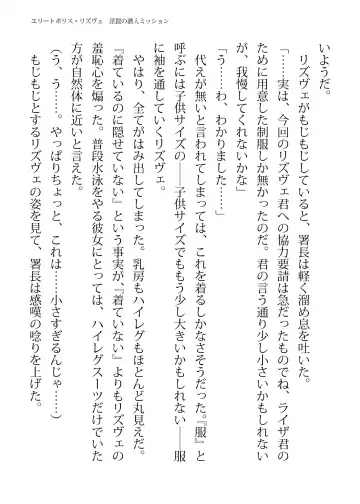 エリートポリス・リズヴェ　淫罠の潜入ミッション
いようだ。
　リズヴェがもじもじしていると、署長は軽く溜め息を吐いた。
「……実は、今回のリズヴェ君への協力要請は急だったものでね、ライザ君の
ために用意した制服しか無かったのだ。君の言う通り少し小さいかもしれない
が、我慢してくれないかな」
「う……わ、わかりました……」
　代えが無いと言われてしまっては、これを着るしかなさそうだった。『服』と
呼ぶには子供サイズの――子供サイズでももう少し大きいかもしれない――服
に袖を通していくリズヴェ。
　やはり、全てがはみ出してしまった。乳房もハイレグもほとんど丸見えだ。
『着ているのに隠せていない』という事実が、『着ていない』よりもリズヴェの
羞恥心を煽った。普段水泳をやる彼女にとっては、ハイレグスーツだけでいた
方が自然体に近いと言えた。
（う、う……。やっぱりちょっと、これは……小さすぎるんじゃ……）
　もじもじとするリズヴェの姿を見て、署長は感嘆の唸りを上げた。